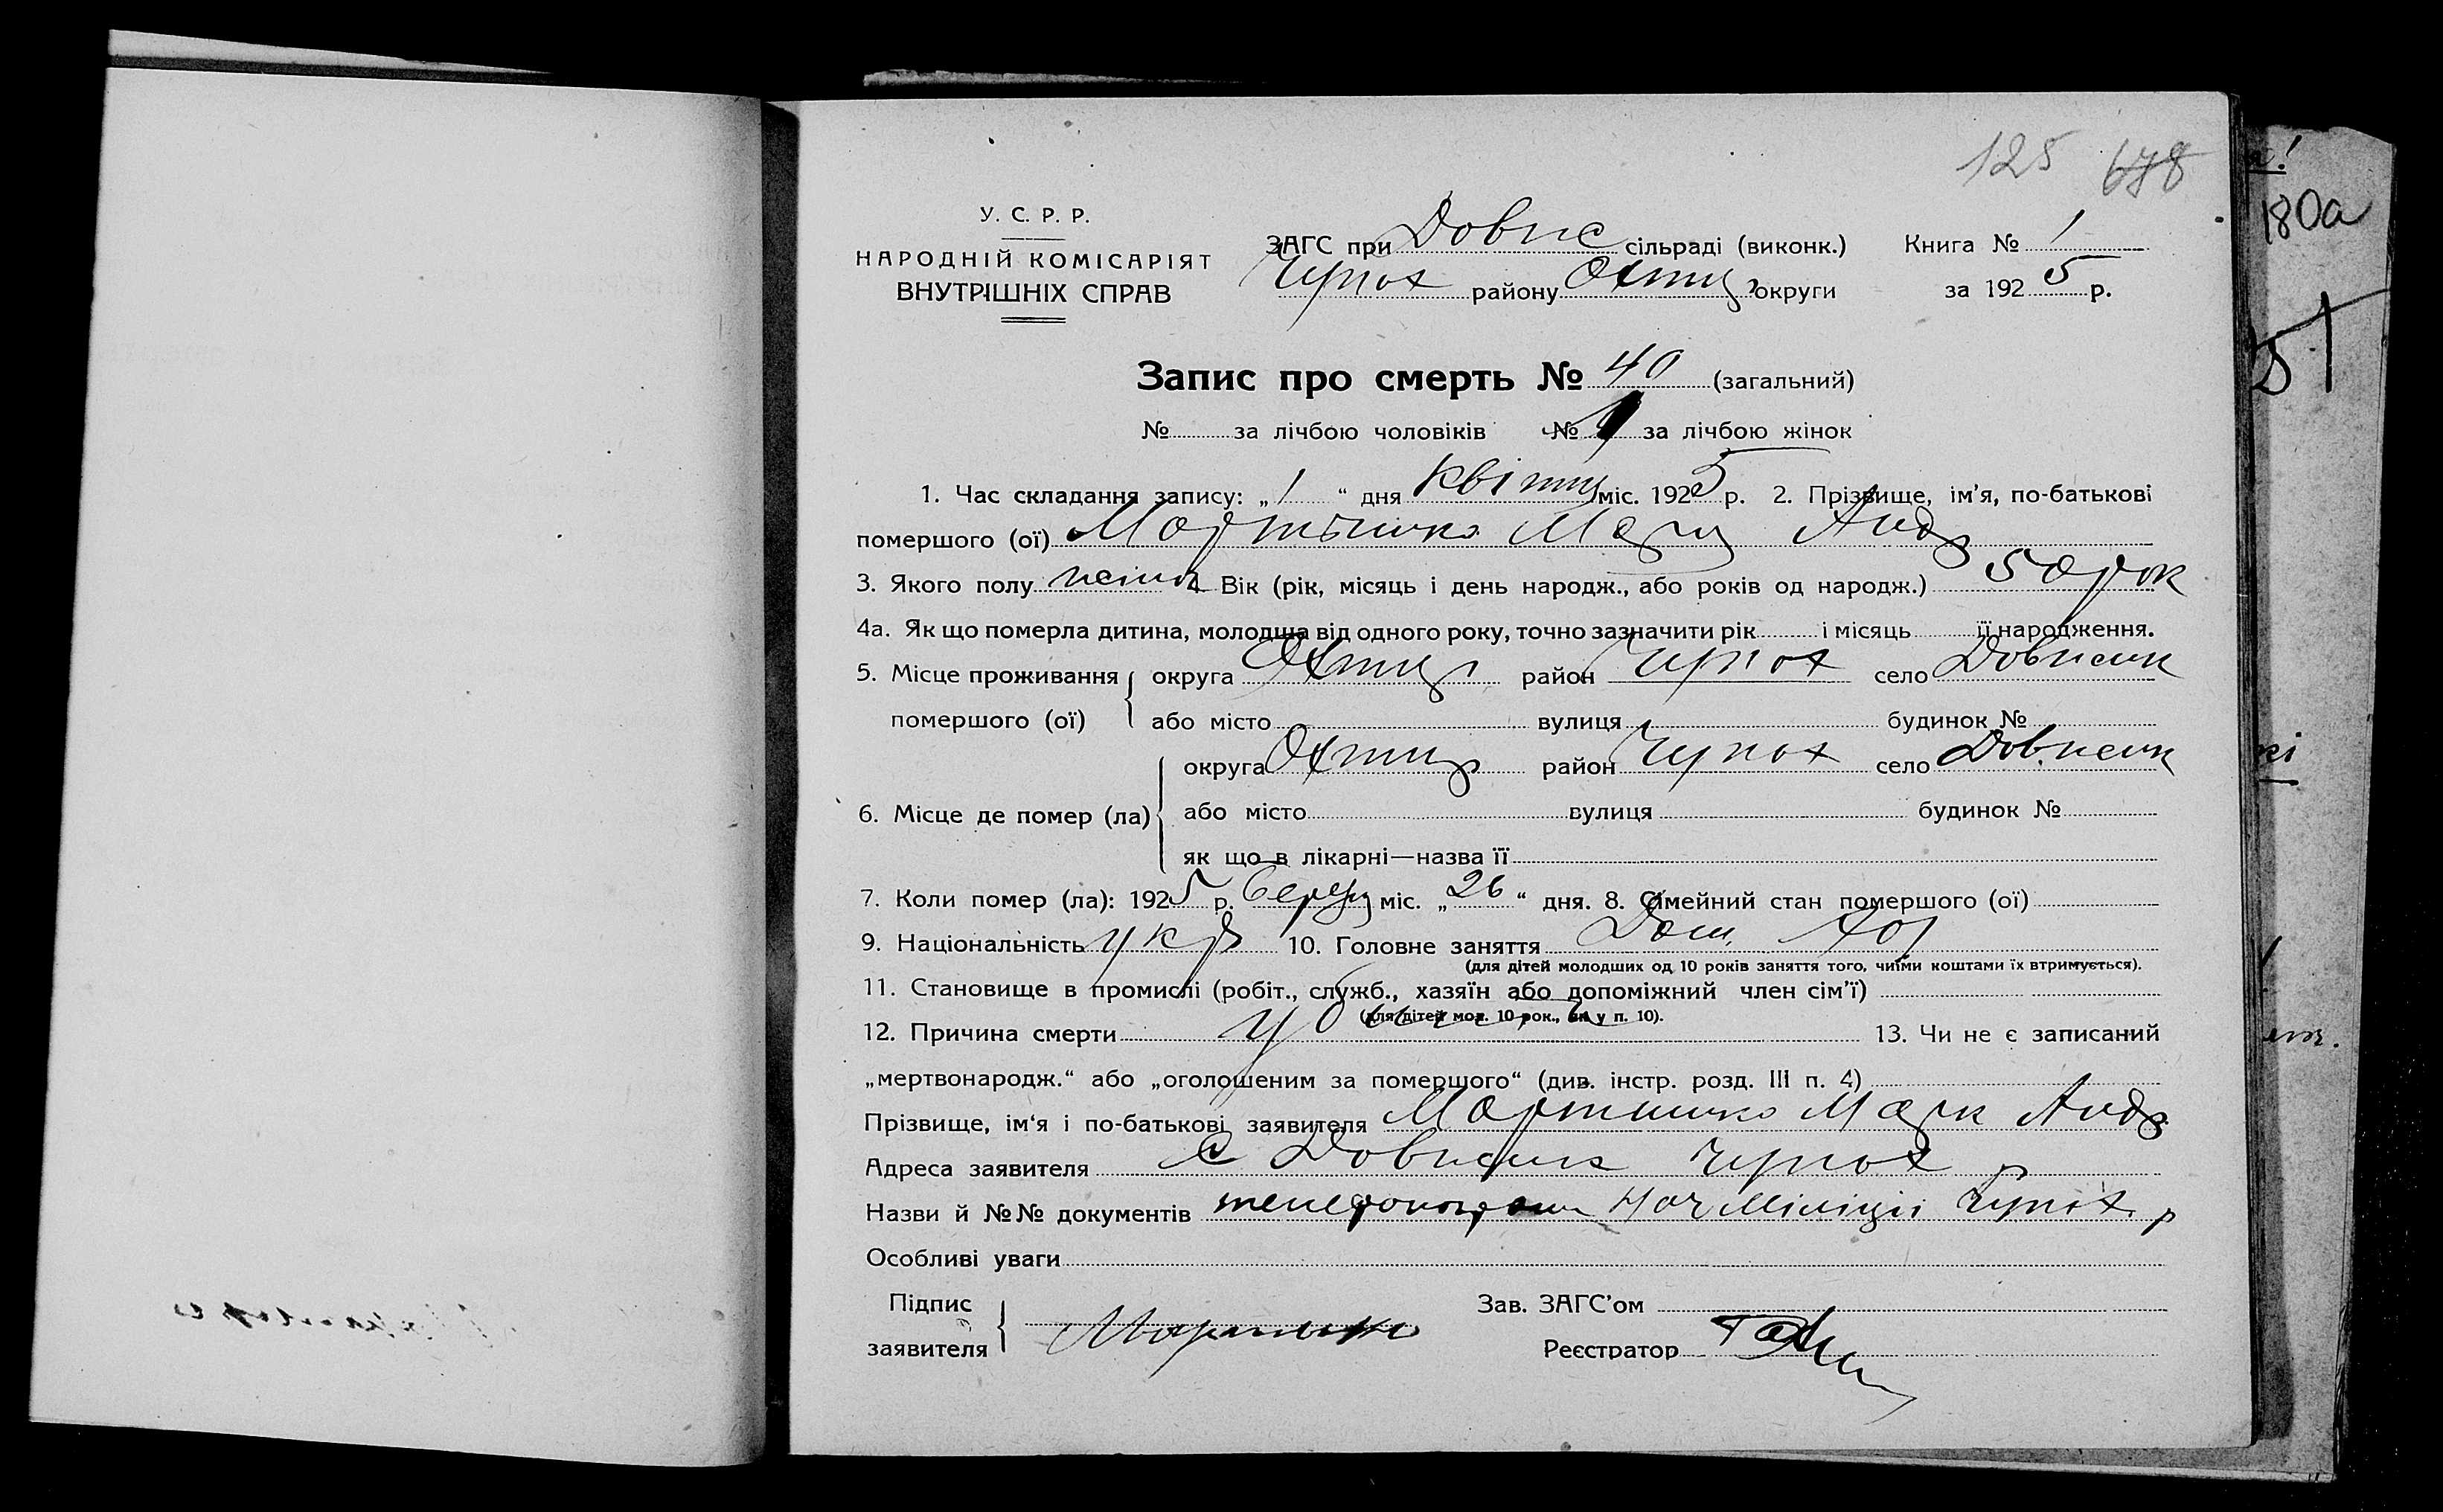 125 678
У. С. Р. Р.
НАРОДНІЙ КОМІСАРІЯТ
ВНУТРІШНІХ СПРАВ
ЗАГС при Довж сільраді (виконк.) Книга № 1
Чупах району Охтир округи за 1925 р.
Запис про смерть № 40 (загальний)
№ за лічбою чоловіків № за лічбою жінок
1. Час складання запису: „1“ дня квітня міс. 1925 р. 2. Прізвище, ім’я, по-батькові
помершого (ої) Андр
3. Якого полу жіноч 4 Вік (рік, місяць і день народж., або років од народж.) 50 рок
4а. Як що померла дитина, молодша від одного року, точно зазначити рік і місяць її народження.
5. Місце проживання округа Охтир район Чупах село
помершого (ої) або місто вулиця будинок №
округа Охтир район Чупах село
6. Місце де помер (ла) або місто вулиця будинок №
як що в лікарні—назва її
7. Коли помер (ла): 1925 р. березн міс. „26“ дня. 8. Сімейний стан помершого (ої)
9. Національність укр 10. Головне заняття Дом. хоз
(для дітей молодших од 10 років заняття того, чиїми коштами їх втримується).
11. Становище в промислі (робіт., служб., хазяїн або допоміжний член сім’ї)
(для дітей мол. 10 рок., як у п. 10).
12. Причина смерти 13. Чи не є записаний
„мертвонародж.“ або „оголошеним за помершого“ (див. інстр. розд. III п. 4)
Прізвище, ім’я і по-батькові заявителя Марк Андр
Адреса заявителя С Чупах р
Назви й №№ документів телефонограм Нач Міліціі Чупах. р
Особливі уваги
Підпис Зав. ЗАГС’ом
заявителя Реєстратор
180а